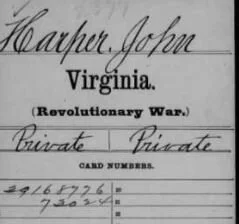 Harper, John
Virginia.
(Revolutionary War.)
Private | Private
CARD NUMBERS.
39168776
73024